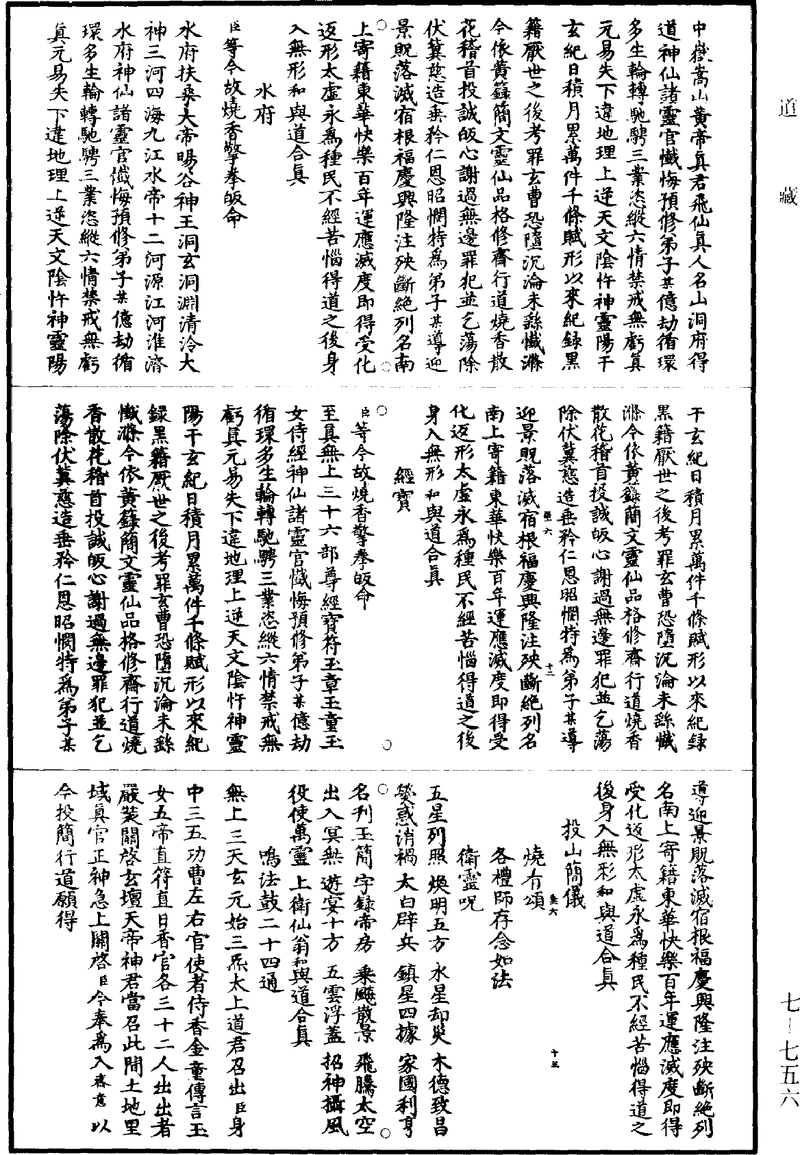 道藏
中嶽嵩山黃帝真君飛仙真人名山洞府得
道神仙諸靈官懺悔預修弟子某億劫循環
多生輪轉馳騁三業恣縱六情禁戒無虧真
元易失下違地理上逆天文陰忤神靈陽干
玄紀日積月累萬件千條賦形以來紀録黑
籍厭世之後考罪玄曹恐墮沉淪未繇懺滌
今依黃籙簡文靈仙品格修齋行道燒香散
花稽首投誠皈心謝過無邊罪犯並乞蕩除
伏冀慈造垂矜仁恩昭憫特為弟子某導迎
景貺落滅宿根福慶興隆注殃斷絕列名南
上寄籍東華快樂百年運應滅度即得受化
返形太虛永為種民不經苦惱得道之後身
入無形和與道合真
臣等今故燒香擎拳皈命
水府
水府扶桑大帝暘谷神王洞玄洞淵清泠大
神三河四海九江水帝十二河源江河淮濟
水府神仙諸靈官懺悔預修弟子某億劫循
環多生輪轉馳騁三業恣縱六情禁戒無虧
真元易失下違地理上逆天文陰忤神靈陽
干玄紀日積月累萬件千條賦形以來紀録
黑籍厭世之後考罪玄曹恐墮沉淪未繇懺
滌今依黃籙簡文靈仙品格修齋行道燒香
散花稽首投誠皈心謝過無邊罪犯並乞蕩
除伏冀慈造垂矜仁恩昭憫特為弟子某導
十二
迎景貺落滅宿根福慶興隆注殃斷絕列名
南上寄籍東華快樂百年運應滅度即得受
化返形太虛永為種民不經苦惱得道之後
身入無形和與道合真
經寶
臣等今故燒香擎拳皈命
至真無上三十六部尊經寶符玉章玉童玉
女侍經神仙諸靈官懺悔預修弟子某億劫
循環多生輪轉馳騁三業恣縱六情禁戒無
虧真元易失下違地理上逆天文陰忤神靈
陽干玄紀日積月累萬件千條賦形以來紀
録黑籍厭世之後考罪玄曹恐墮沉淪未繇
懺滌今依黃籙簡文靈仙品格修齋行道燒
香散花稽首投誠皈心謝過無邊罪犯並乞
蕩除伏冀慈造垂矜仁恩昭憫特為弟子某
導迎景貺落滅宿根福慶興隆注殃斷絕列
名南上寄籍東華快樂百年運應滅度即得
受化返形太虛永為種民不經苦惱得道之
後身入無形和與道合真
投山簡儀
十三
燒香頌
各禮師存念如法
衛靈呪
五星列照 煥明五方 水星却災 木德致昌
熒惑消禍 太白辟兵 鎮星四據 家國利亨
名刊玉簡 字録帝房 乘飈散景 飛騰太空
出入冥無 遊宴十方 五雲浮蓋 招神攝風
役使萬靈 上衛仙翁和與道合真
鳴法鼓二十四通
無上三天玄元始三炁太上道君召出臣身
中三五功曹左右官使者侍香金童傳言玉
女五帝直符直日香官各三十二人出出者
嚴裝關啓玄壇天帝神君當召此間土地里
域真官正神急上關啓臣今奉為入齋意以
今投簡行道願得
七－七五六